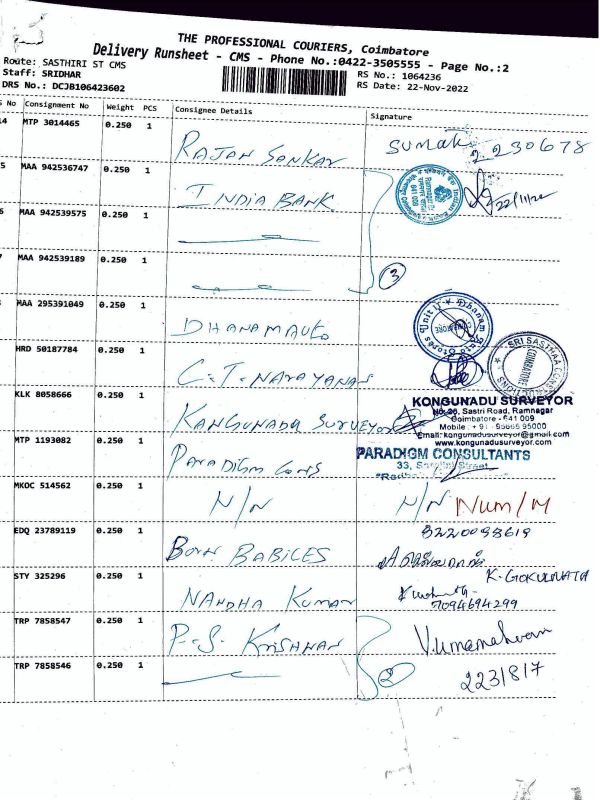 THE PROFESSIONAL COURIERS, Coimbatore
Delivery Runsheet - CMS - Phone No.:0422-3505555 - Page No.:2
Route: SASTHIRI ST CMS
Staff: SRIDHAR
DRS No.: DCJB106423602
RS No.: 1064236
RS Date: 22-Nov-2022
No Consignment No Weight PCS Consignee Details Signature
14 MTP 3014465 0.250 1 RAJAN SANKAR SUMAK 2230678
5 MAA 942536747 0.250 1 INDIA BANK 22/11/22
6 MAA 942539575 0.250 1
MAA 942539189 0.250 1 3
MAA 295391049 0.250 1 DHANAM AUTO
HRD 50187784 0.250 1 C.T. NARAYANAN
SRI SASTHAA
COIMBATORE
KLK 8058666 0.250 1 KANGUNADU SURVEYOR
KONGUNADU SURVEYOR
No:26, Sastri Road, Ramnagar
Coimbatore - 641 009
Email: kongunadusurveyor@gmail.com
www.kongunadusurveyor.com
MTP 1193082 0.250 1 PARADIGM CONS
PARADIGM CONSULTANTS
MKOC 514562 0.250 1 N/N N/N Num/M
EDQ 23789119 0.250 1 BORN BABIES 8220098619
K. GOKULNATH
STY 325296 0.250 1 NANDHA KUMAR 7094694299
TRP 7858547 0.250 1 P.S. KRISHNAN V.umamaheswari
TRP 7858546 0.250 1 2 2231817